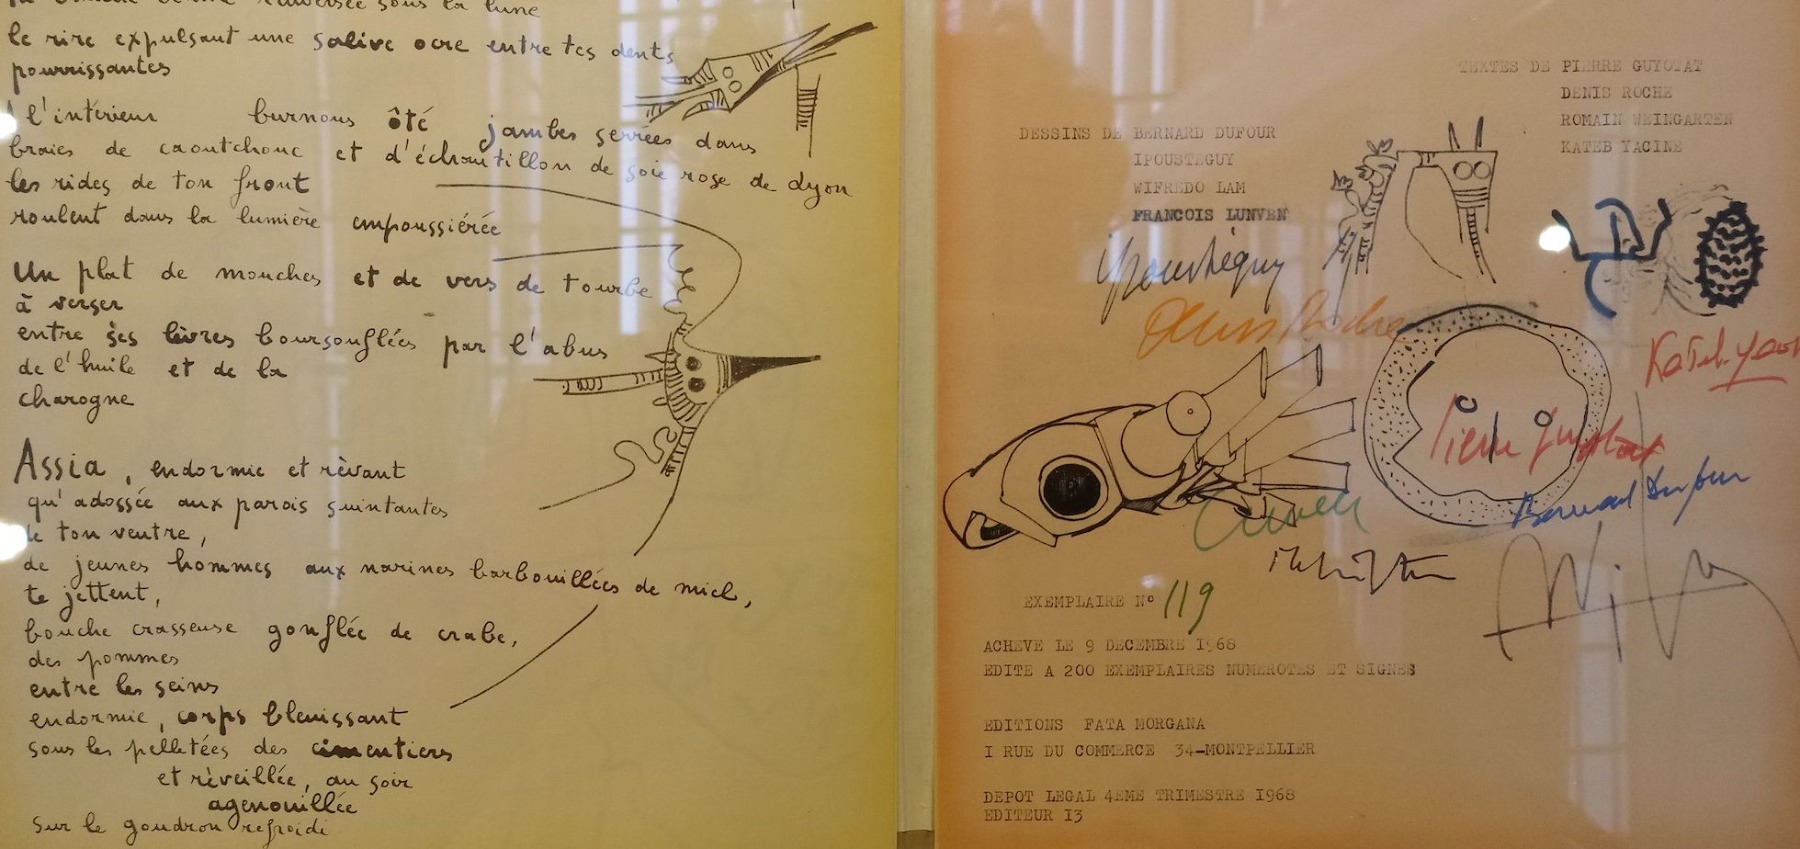 sous la lune
le rire expulsant une salive ocre entre tes dents
pourrissantes
l'intérieur burnous ôté jambes serrées dans
braies de caoutchouc et d'échantillon de soie rose de Lyon
les rides de ton front
roulent dans la lumière empoussiérée
Un plat de mouches et de vers de tourbe
à verser
entre ses lèvres boursouflées par l'abus
de l'huile et de la
charogne
Assia, endormie et rêvant
qu'adossée aux parois suintantes
de ton ventre,
de jeunes hommes aux narines barbouillées de miel,
te jettent,
bouche crasseuse gonflée de crabe,
des pommes
entre les seins
endormie, corps bleuissant
sous les pelletées des cimentiers
et réveillée, au soir
agenouillée
sur le goudron refroidi
TEXTES DE PIERRE GUYOTAT
DENIS ROCHE
ROMAIN WEINGARTEN
KATEB YACINE
DESSINS DE BERNARD DUFOUR
IPOUSTEGUY
WIFREDO LAM
FRANCOIS LUNVEN
ipousteguy
Denis Roche
Kateb Yacine
Pierre Guyotat
Bernard Dufour
Lunven
EXEMPLAIRE N° 119
ACHEVE LE 9 DECEMBRE 1968
EDITE A 200 EXEMPLAIRES NUMEROTES ET SIGNES
EDITIONS FATA MORGANA
I RUE DU COMMERCE 34-MONTPELLIER
DEPOT LEGAL 4EME TRIMESTRE 1968
EDITEUR 13